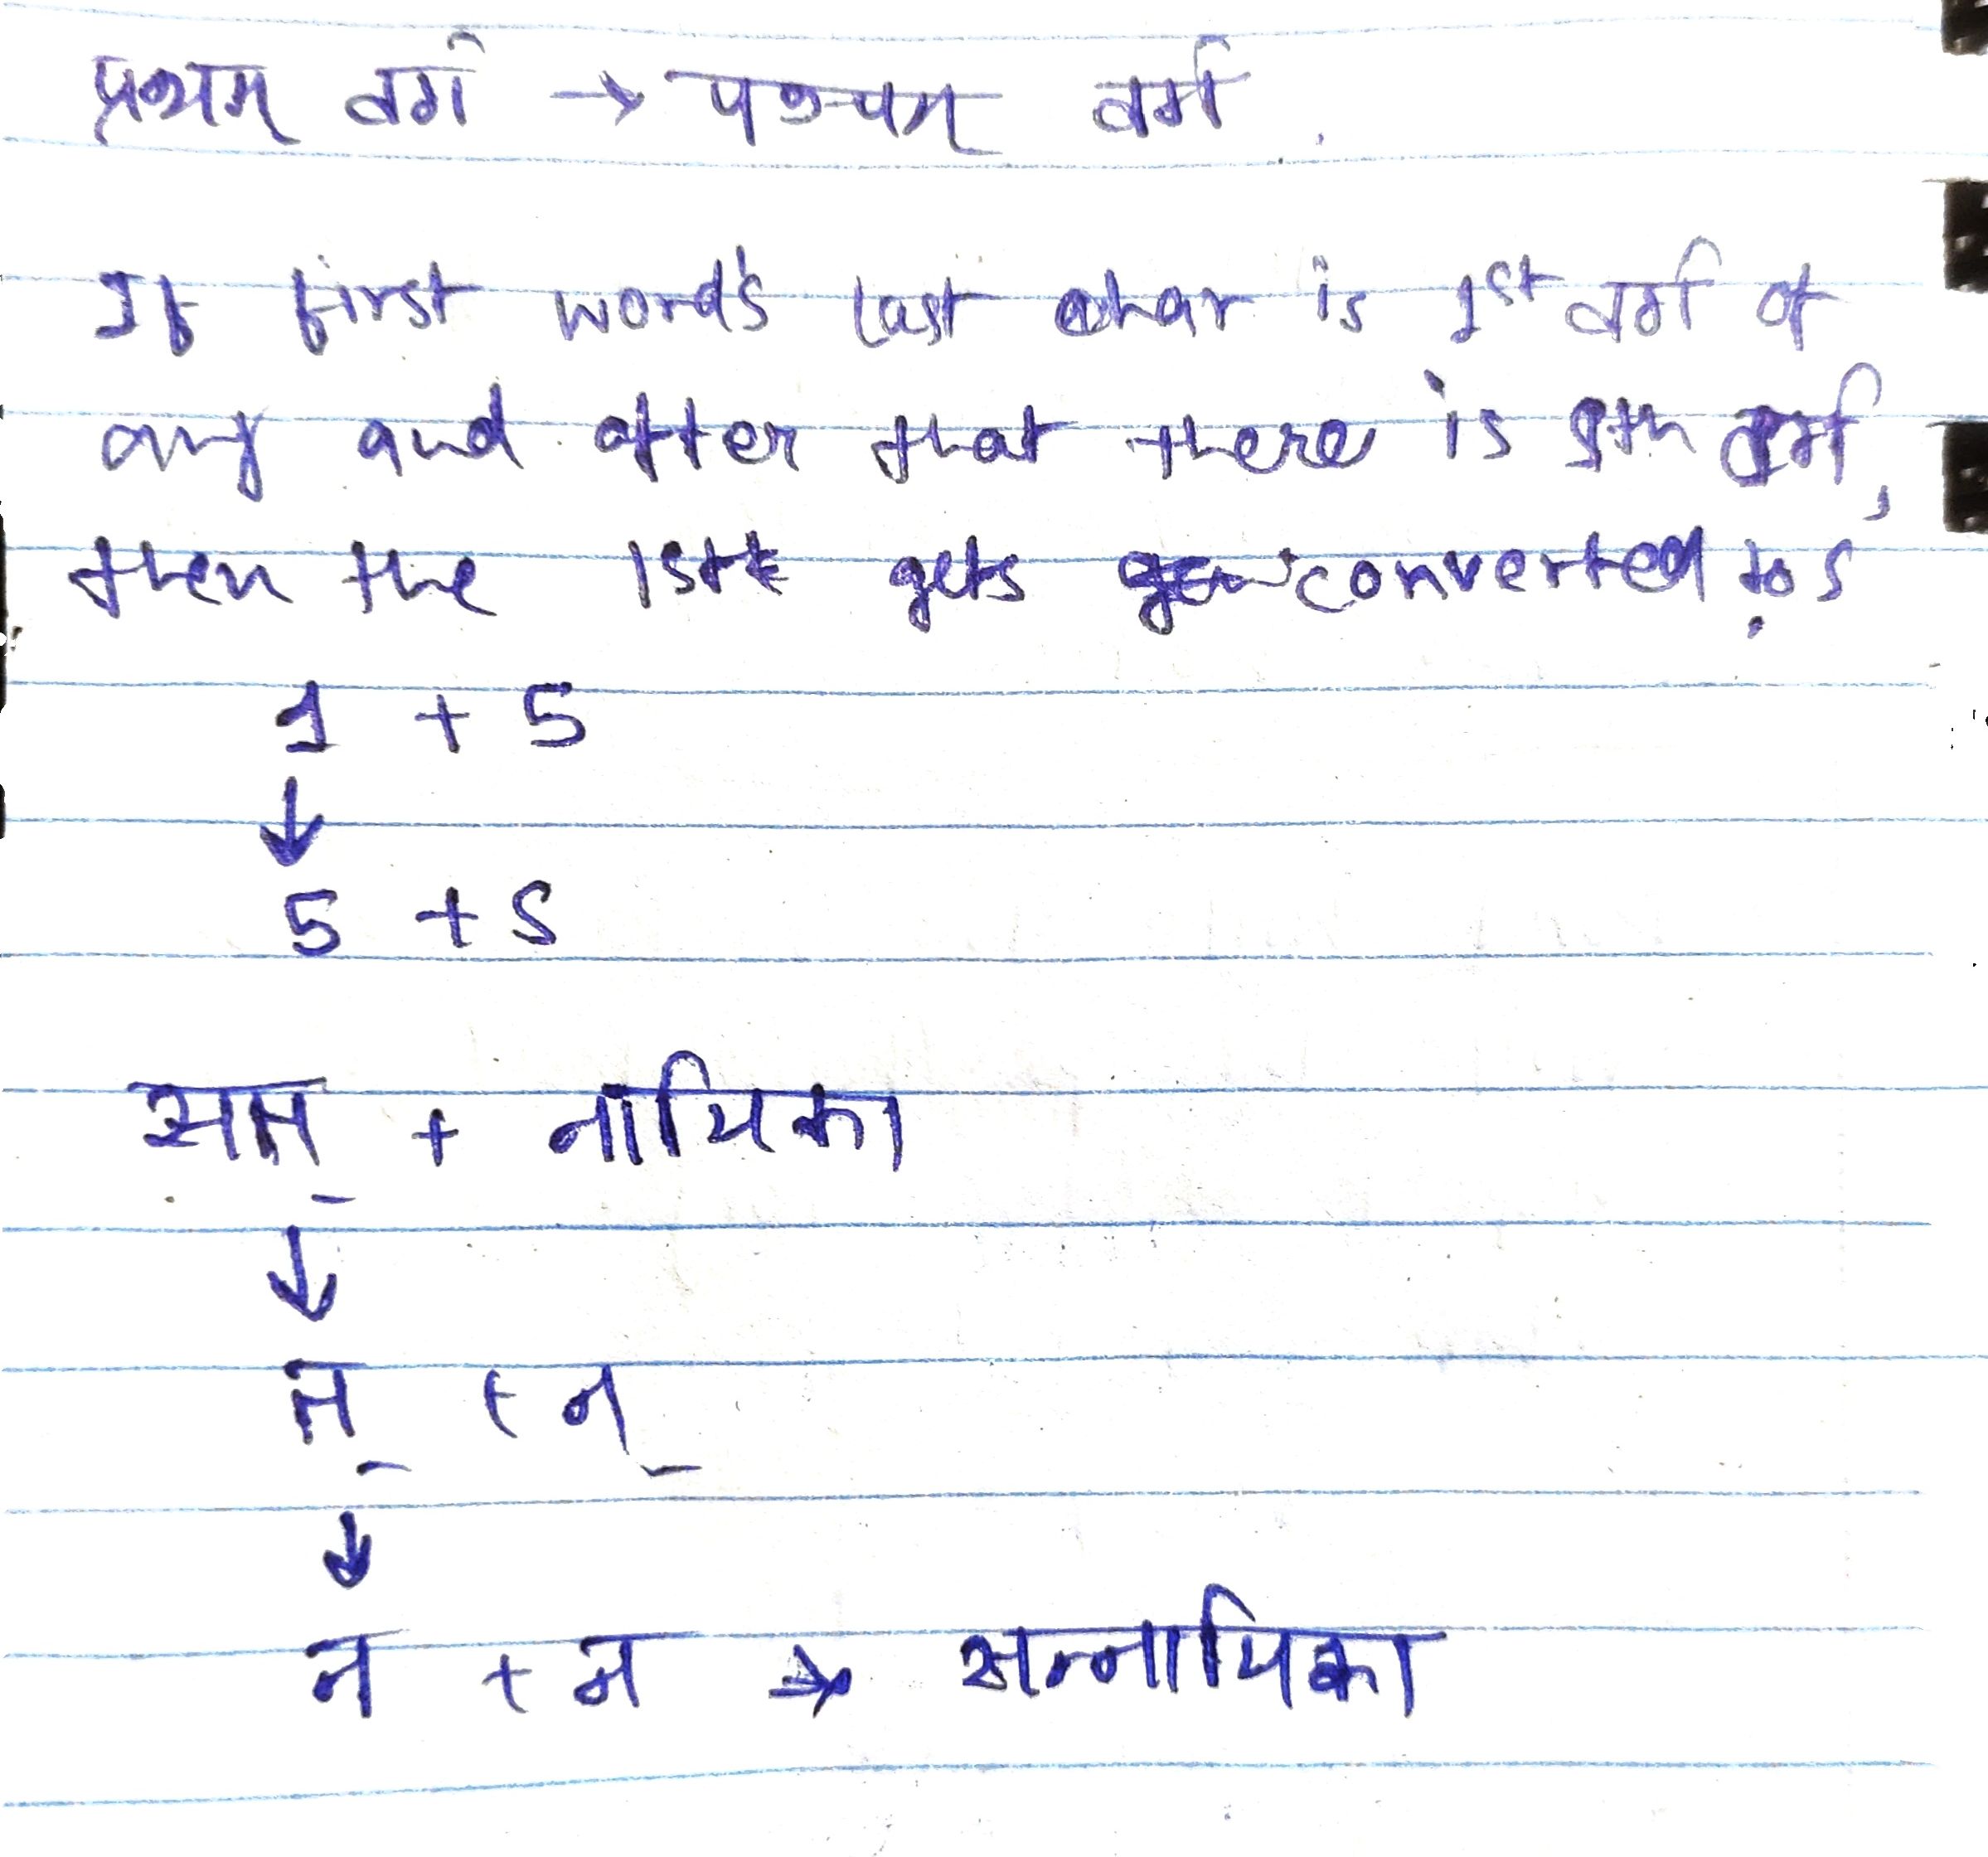 प्रथम् वर्ग → पञ्चम् वर्ग
If first word's last char is 1st वर्ग of
any and after that there is 5th वर्ग,
then the 1st gets converted to 5
1 + 5
↓
5 + 5
सत् + नायिका
↓
त् + न्
↓
न + न → सन्नायिका